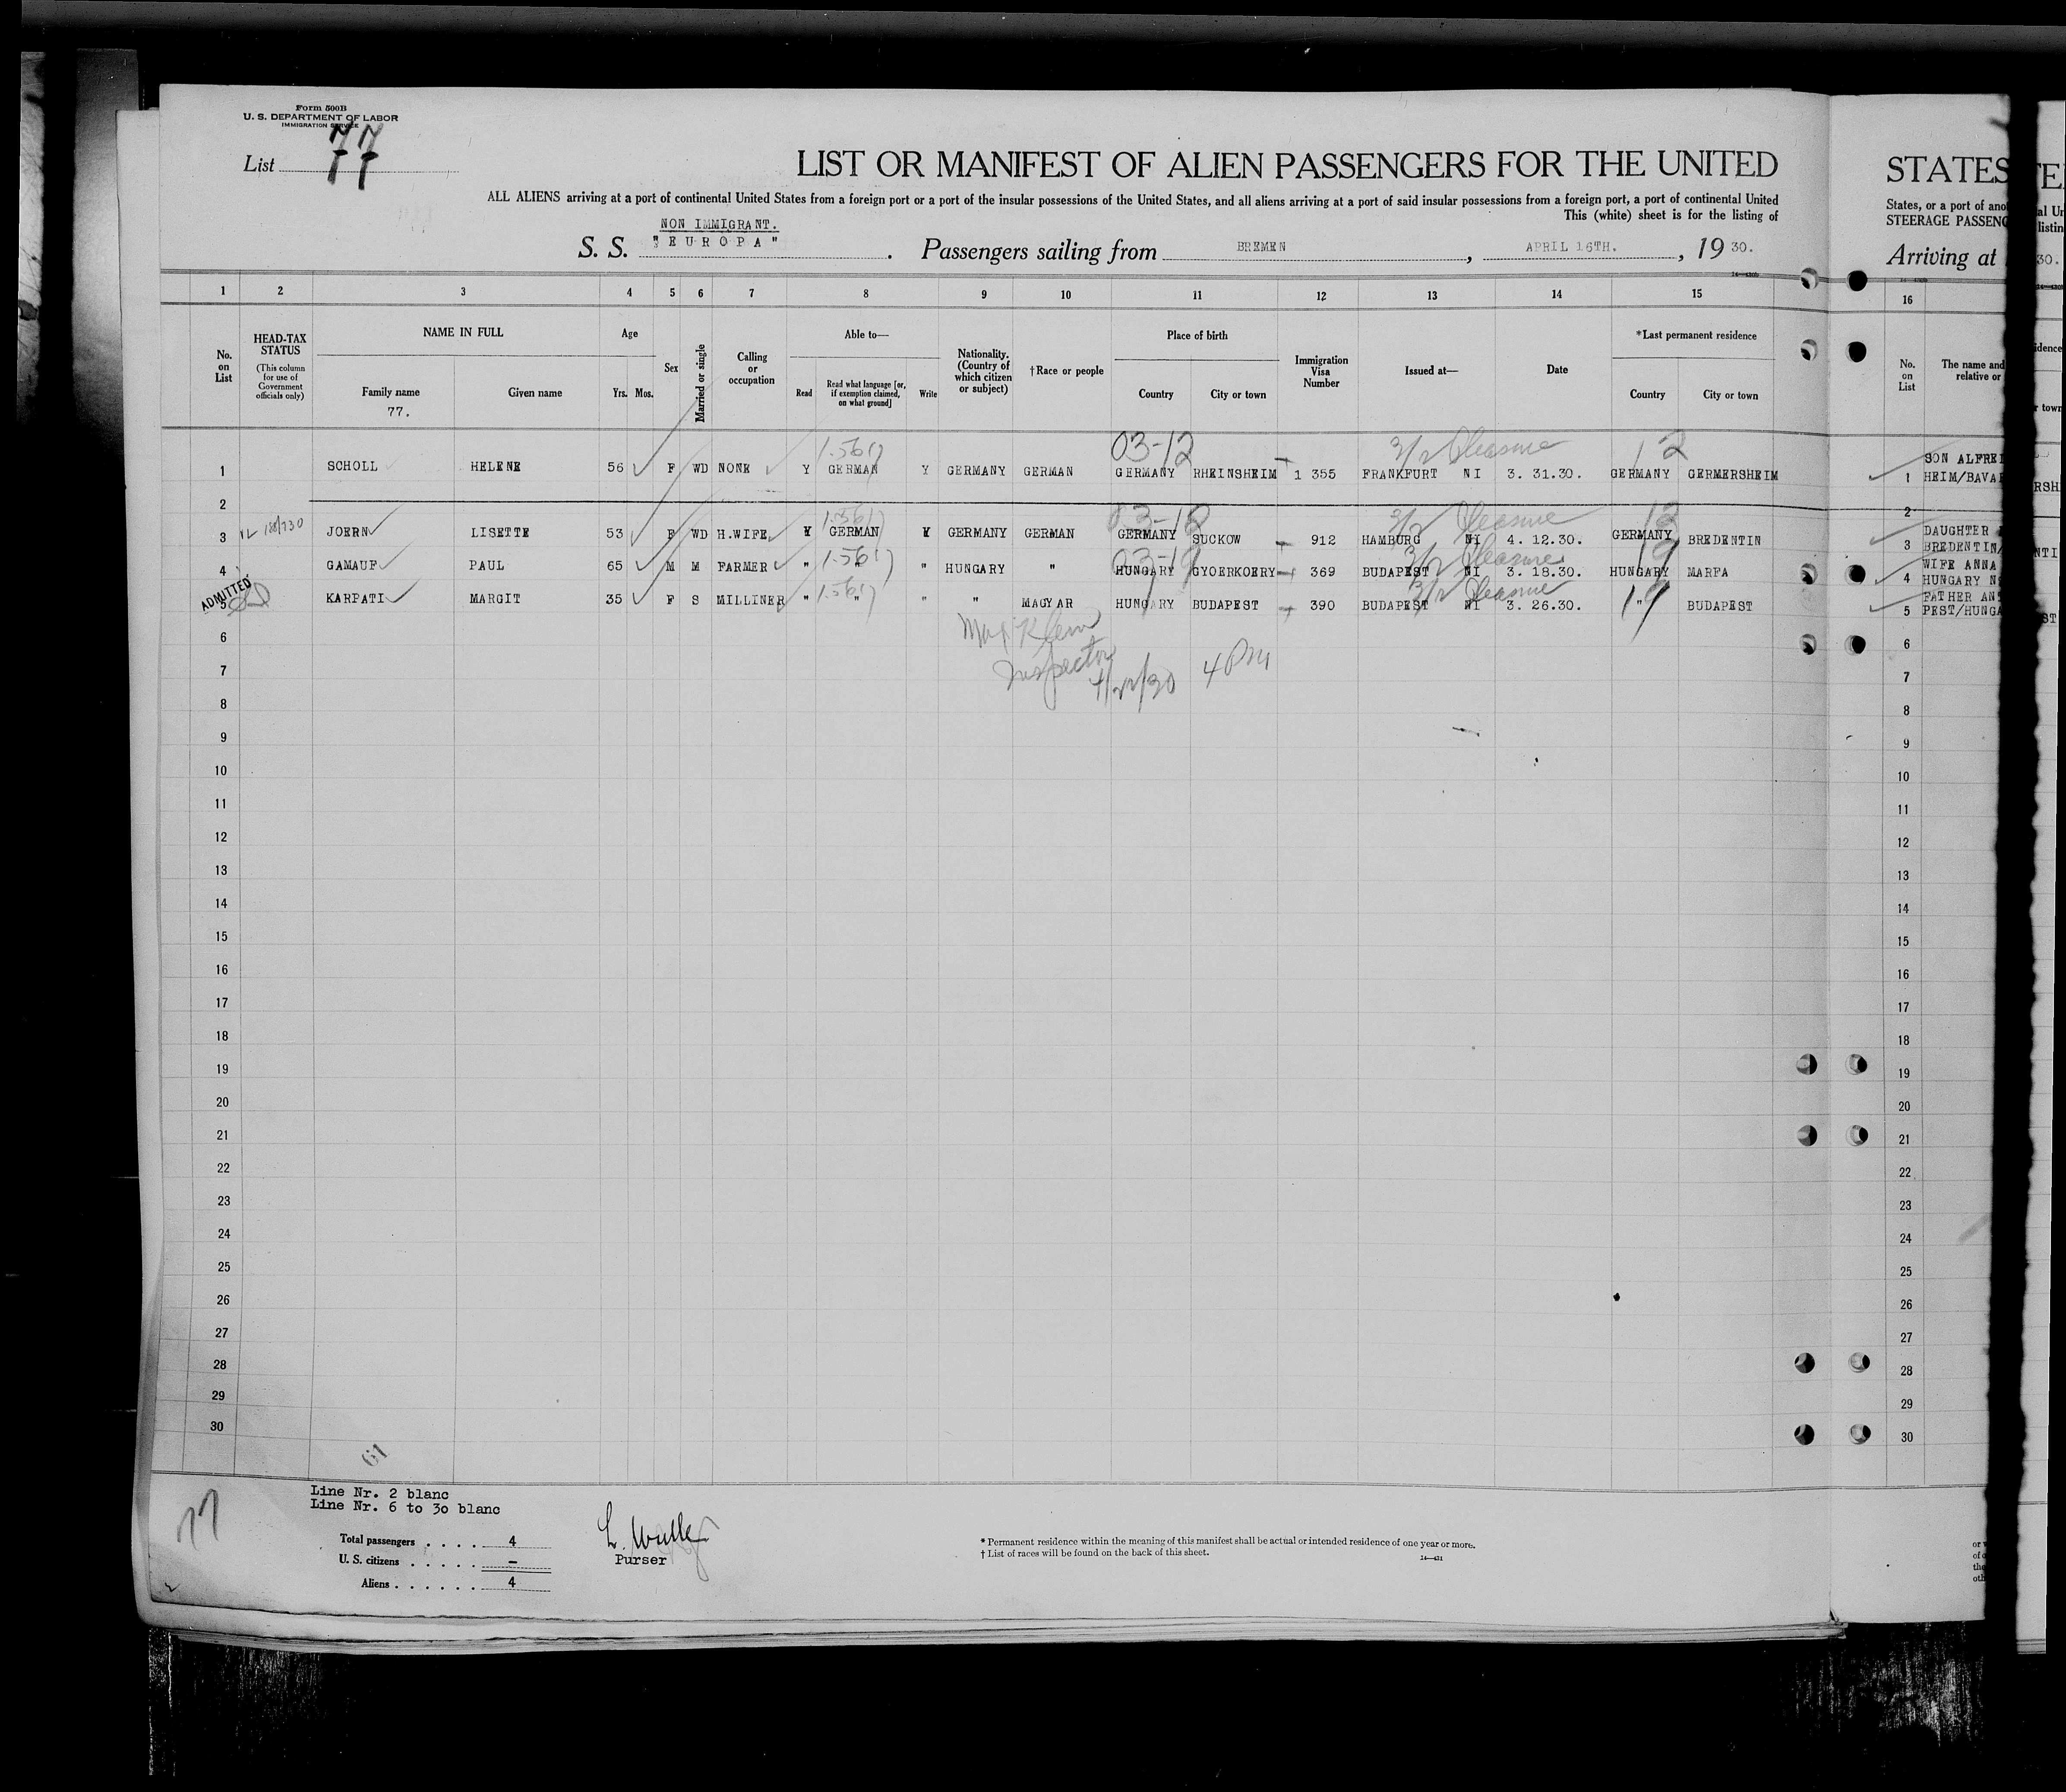 Form 500B
U. S. DEPARTMENT OF LABOR
IMMIGRATION SERVICE
List 77
LIST OR MANIFEST OF ALIEN PASSENGERS FOR THE UNITED
ALL ALIENS arriving at a port of continental United States from a foreign port or a port of the insular possessions of the United States, and all aliens arriving at a port of said insular possessions from a foreign port, a port of continental United
This (white) sheet is for the listing of
NON IMMIGRANT.
S. S. "EUROPA". Passengers sailing from BREMEN, APRIL 16TH., 19 30.
1 2 3 4 5 6 7 8 9 10 11 12 13 14 15
No. on List
HEAD-TAX STATUS
(This column for use of Government officials only)
NAME IN FULL
Family name
77.
Given name
Age
Yrs. Mos.
Sex
Married or single
Calling or occupation
Able to—
Read
Read what language [or, if exemption claimed, on what ground]
Write
Nationality. (Country of which citizen or subject)
†Race or people
Place of birth
Country
City or town
Immigration Visa Number
Issued at—
Date
*Last permanent residence
Country
City or town
03-12 12
1 SCHOLL HELENE 56 F WD NONE Y GERMAN Y GERMANY GERMAN GERMANY RHEINSHEIM 1 355 FRANKFURT NI 3. 31.30. GERMANY GERMERSHEIM
2
03-18
3 JOERN LISETTE 53 F WD H.WIFE Y GERMAN Y GERMANY GERMAN GERMANY SUCKOW 912 HAMBURG NI 4. 12.30. GERMANY BREDENTIN
03-19 19
4 GAMAUF PAUL 65 M M FARMER " " " HUNGARY " HUNGARY GYOERKOERY 369 BUDAPEST NI 3. 18.30. HUNGARY MARPA
ADMITTED
5 KARPATI MARGIT 35 F S MILLINER " " " " MAGYAR HUNGARY BUDAPEST 390 BUDAPEST NI 3. 26.30. " BUDAPEST
19
Max Klein
Inspector
4/22/30 4 PM
6
7
8
9
10
11
12
13
14
15
16
17
18
19
20
21
22
23
24
25
26
27
28
29
30
61
77
Line Nr. 2 blanc
Line Nr. 6 to 30 blanc
Total passengers . . . . 4
U. S. citizens . . . . . —
Aliens . . . . . . 4
Purser
* Permanent residence within the meaning of this manifest shall be actual or intended residence of one year or more.
† List of races will be found on the back of this sheet.
14—431
STATES
States, or a port of ano
STEERAGE PASSENG
Arriving at
16
No. on List
The name and
relative or
SON ALFRE
1 HEIM/BAVA
2
DAUGHTER
3 BREDENTIN/
WIFE ANNA
4 HUNGARY
FATHER AN
5 PEST/HUNGA
6
7
8
9
10
11
12
13
14
15
16
17
18
19
20
21
22
23
24
25
26
27
28
29
30